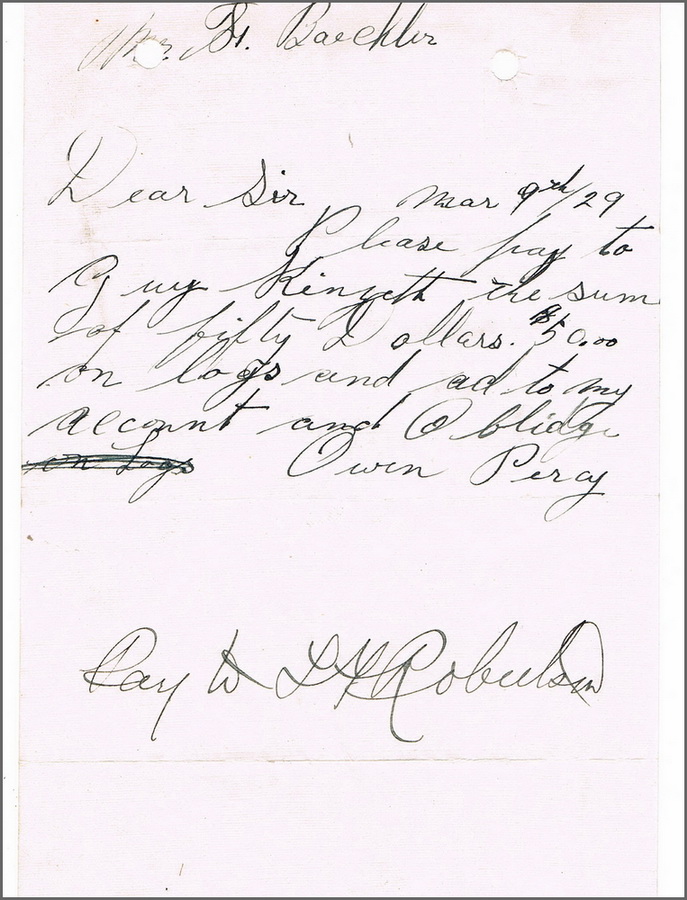 Mr. Fr. Baechler
Dear Sir Mar 9th/29
Please pay to
Guy Kingett the sum
of fifty Dollars. $50.00
on logs and ad to my
account and Oblidge
on Logs Owen Percy
Pay to L H Robertson